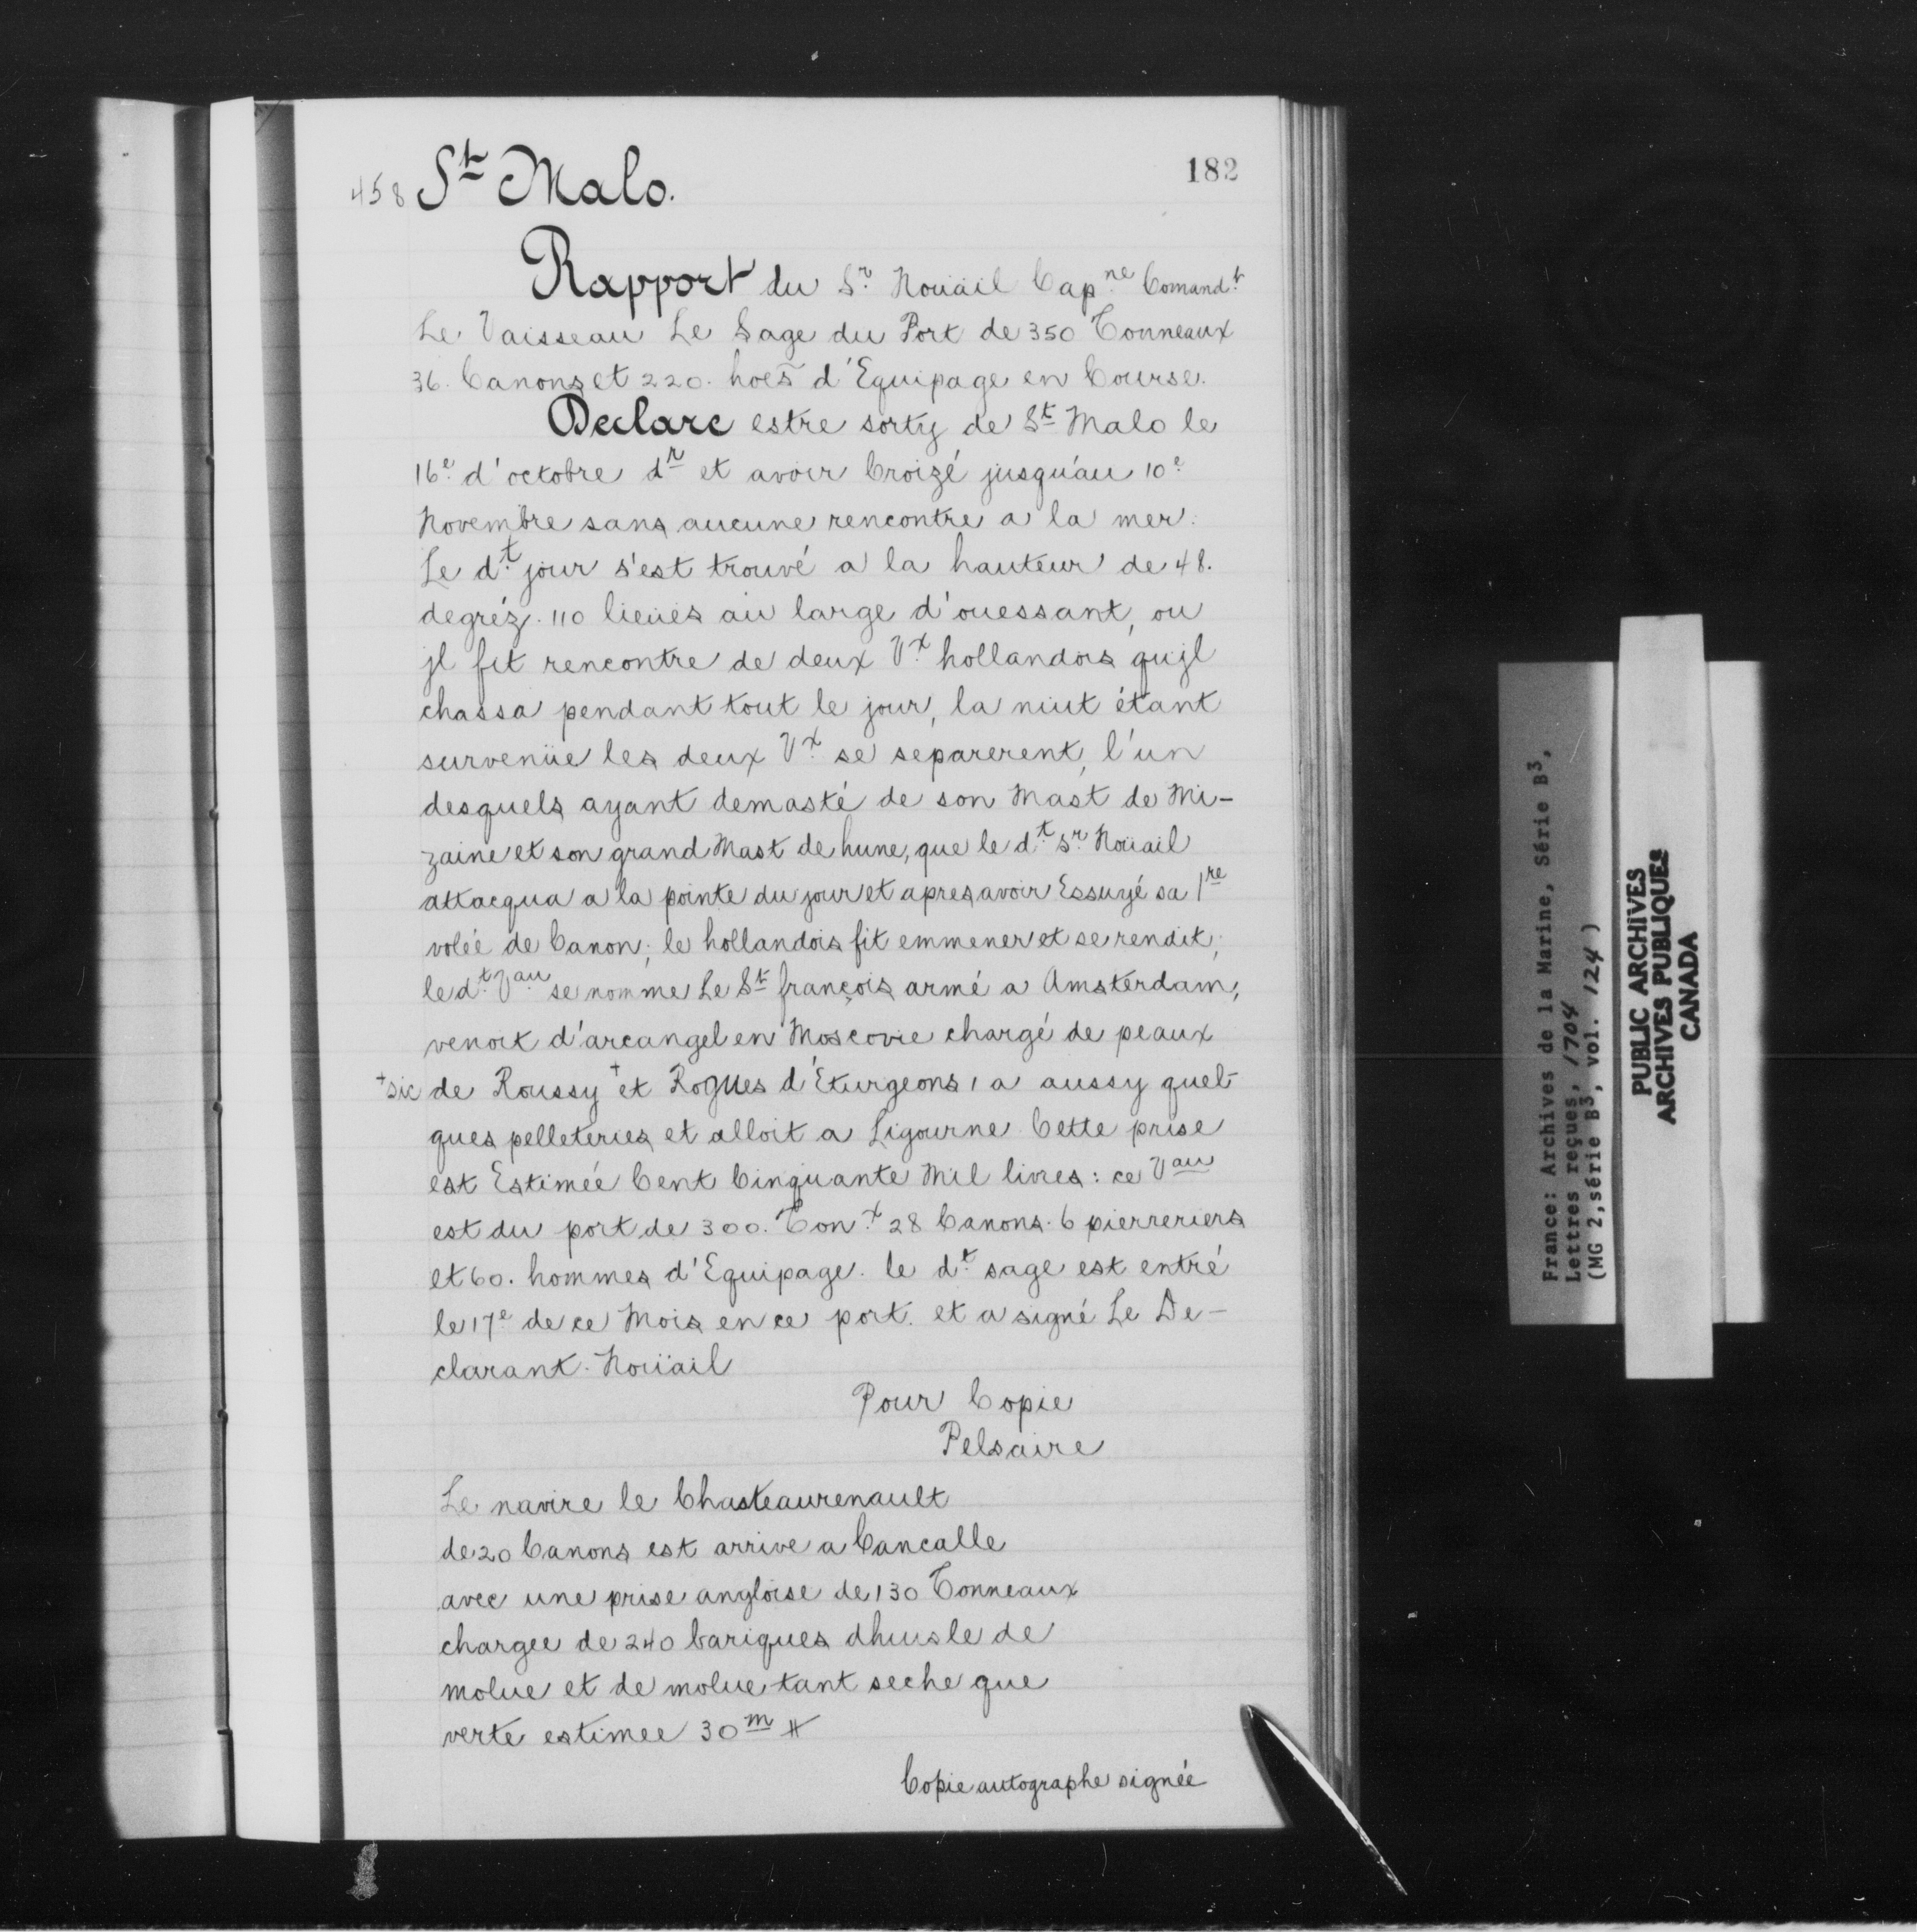 182
458 St Malo.
Rapport du Sr. Noüail Capne. Comandt.
Le Vaisseau Le Sage du Port de 350 Tonneaux
36. Canons et 220. hoēs d'Equipage en Course.
Declare estre sorty de St Malo le
16e. d'octobre dr et avoir Croizé jusqu'au 10e.
Novembre sans aucune rencontre a la mer.
Le dt. jour s'est trouvé a la hauteur de 48.
degréz. 110 lieües au large d'ouessant, ou
jl fit rencontre de deux Vx. hollandois qu'jl
chassa pendant tout le jour, la nuit étant
survenüe les deux Vx. se separerent, l'un
desquels ayant demasté de son Mast de Mi-
zaine et son grand Mast de hune, que le dt. Sr. Noüail
attacqua a la pointe du jour et apres avoir Essuyé sa 1re
volée de Canon; le hollandois fit emmener et se rendit;
le dt. Vau. se nomme Le St françois armé a Amsterdam,
venoit d'arcangel en Moscovie chargé de peaux
+sic de Roussy + et Rogues d'Eturgeons, a aussy quel-
ques pelleteries et alloit a Ligourne Cette prise
est Estimée Cent Cinquante Mil livres: ce Vau
est du port de 300. Tonx. 28 Canons. 6 pierreriers
et 60. hommes d'Equipage. le dt. sage est entré
le 17e de ce Mois en ce port. et a signé Le De-
clarant. Noüail
Pour Copie
Pelsaire
Le navire le Chasteaurenault
de 20 Canons est arrive a Cancalle
avec une prise angloise de 130 Tonneaux
chargee de 240 bariques dhuisle de
molue et de molue tant seche que
verte estimee 30m ⧺
Copie autographe signée
France: Archives de la Marine, Série B3,
Lettres reçues, 1704
(MG 2, série B3, vol. 124 )
PUBLIC ARCHIVES
ARCHIVES PUBLIQUES
CANADA